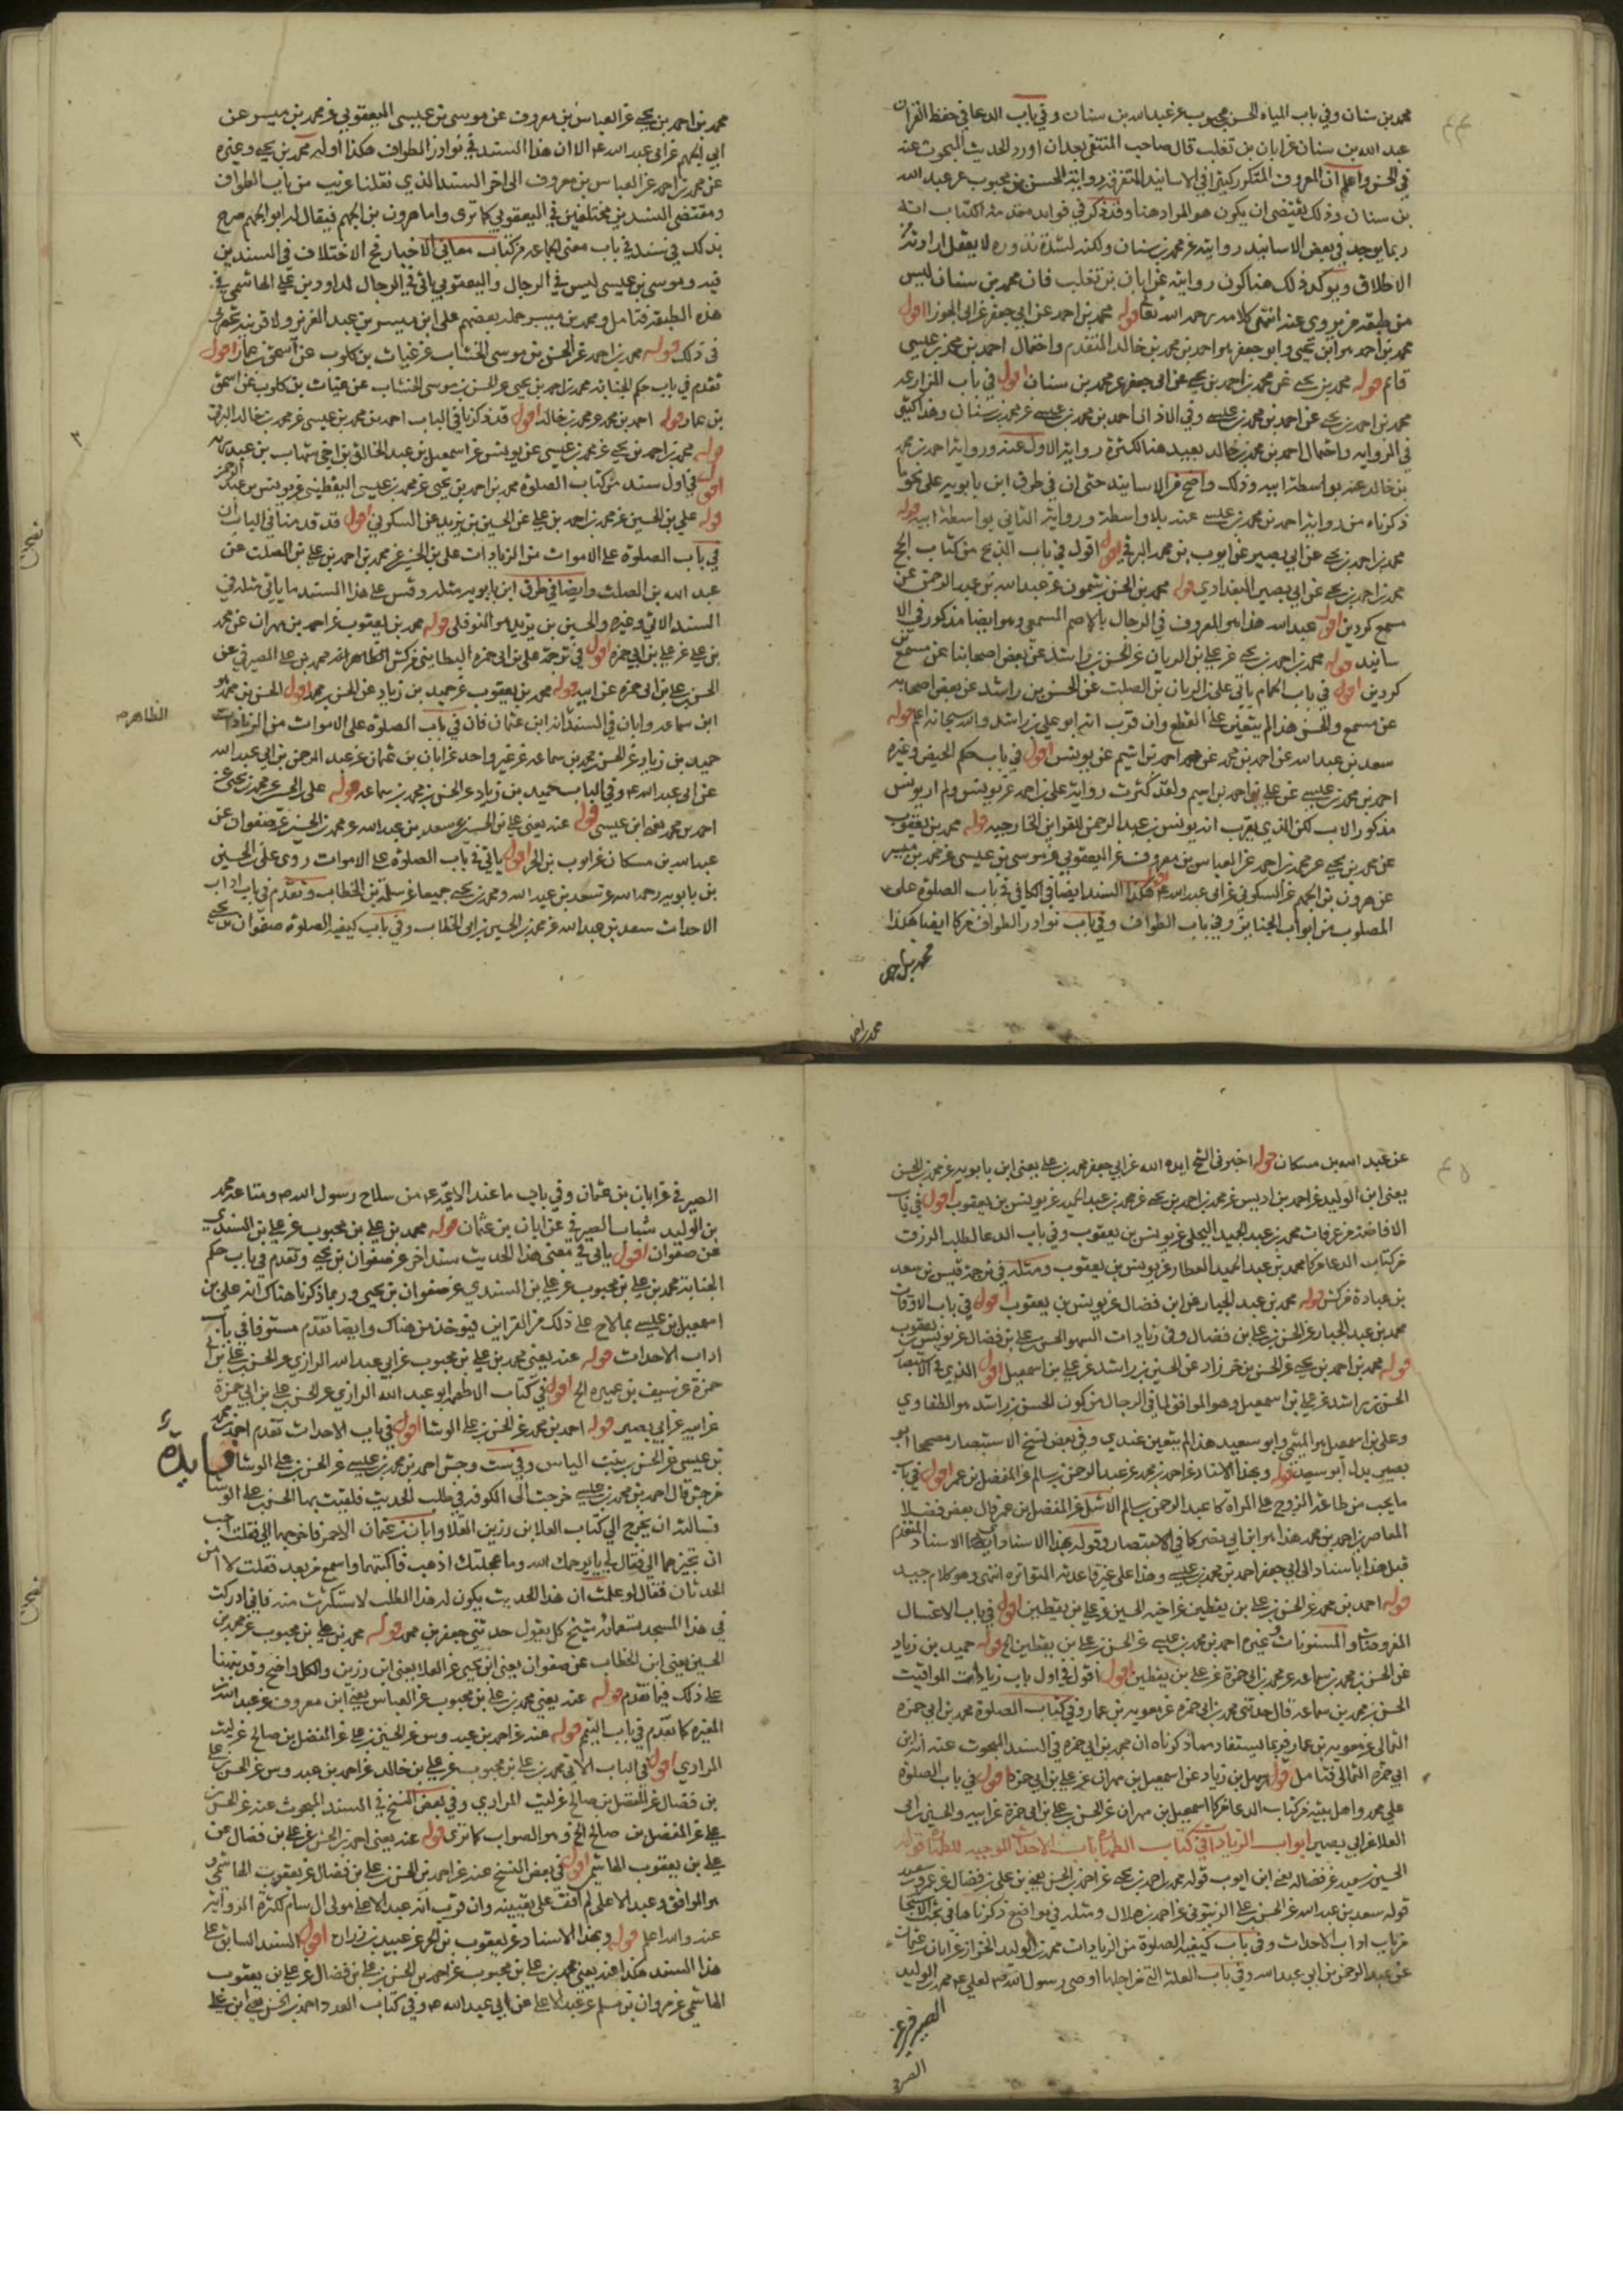 محمد بن سنان وفي باب المياه الحسن بن محبوب عن عبد الله بن سنان وفي باب الدعا في حفظ القران
عبد الله بن سنان عن ابان بن تغلب قال صاحب المنتقى بعد ان اورد الحديث المبحوث عنه
في الحسن واعلم ان المعروف المتكرر كثيرا في الاسانيد المتفرقة رواية الحسن بن محبوب عن عبد الله
بن سنان وذلك يقتضي ان يكون هو المراد هنا وقد ذكر في فوايد مقدمة الكتاب انه
ربما يوجد في بعض الاسانيد روايته عن محمد بن سنان ولكنه لشدة ندوره لا يعقل ارادته
الاطلاق ويؤكد ذلك هنا كون روايته عن ابان بن تغلب فان محمد بن سنان ليس
من طبقة من يروي عنه انتهى كلامه رحمه الله تعالى قوله محمد بن احمد عن ابي جعفر عن ابي الجوزا اقول
محمد بن احمد هو ابن يحيى وابو جعفر هو احمد بن محمد بن خالد المتقدم واحتمال احمد بن محمد بن عيسى
قائم قوله محمد بن يحيى عن محمد بن احمد بن يحيى عن ابي جعفر عن محمد بن سنان اقول في باب المزار
محمد بن احمد بن يحيى عن احمد بن محمد بن عيسى وفي الاذان احمد بن محمد بن عيسى عن محمد بن سنان وهذا كثير
في الرواية واحتمال احمد بن محمد بن خالد بعيد هنا لكثرة رواية الاول عنه ورواية احمد بن محمد
بن خالد عنه بواسطة ابيه وذلك واضح من الاسانيد حتى ان في طرق ابن بابويه على نحو ما
ذكرناه من رواية احمد بن محمد بن عيسى عنه بلا واسطة ورواية الثاني بواسطة ابيه قوله
محمد بن احمد بن يحيى عن ابي بصير عن ايوب بن محمد البرقي اقول في باب الذبح من كتاب الحج
محمد بن احمد بن يحيى عن ابي بصير البغدادي قوله محمد بن الحسن بن شمون عن عبد الله بن عبد الرحمن عن
مسمع كردين اقول عبد الله هذا هو المعروف في الرجال بالاصم المسمعي وهو ايضا مذكور في الا
سانيد قوله محمد بن احمد بن يحيى عن علي بن الريان عن الحسن بن راشد عن بعض اصحابنا عن مسمع
كردين اقول في باب الحمام ياتي علي بن الريان بن الصلت عن الحسن بن راشد عن بعض اصحابه
عن مسمع والحسن هذا لم يتعين على القطع وان قرب انه ابو علي بن راشد والله سبحانه اعلم قوله
سعد بن عبد الله عن احمد بن محمد عن احمد بن اشيم عن يونس اقول في باب حكم الحيض وغيره
احمد بن محمد بن عيسى عن علي بن احمد بن اشيم ولقد كثرت رواية علي بن احمد عن يونس ولم ار يونس
مذكور الاب لكن الذي يقرب انه يونس بن عبد الرحمن للقراين الخارجيه قوله محمد بن يعقوب
عن محمد بن يحيى عن محمد بن احمد عن العباس بن معروف عن اليعقوبي عن موسى بن عيسى عن محمد بن ميسر
عن هرون بن الجهم عن السكوني عن ابي عبد الله ع اقول هكذا السند ايضا في الكافي في باب الصلوة على
المصلوب من ابواب الجنايز وفي باب الطواف وفي باب نوادر الطواف من كا ايضا هكذا
محمد بن احمد
محمد بن احمد بن يحيى عن العباس بن معروف عن موسى بن عيسى اليعقوبي عن محمد بن ميسر عن
ابي الجهم عن ابي عبد الله ع الا ان هذا السند في نوادر الطواف هكذا اوله محمد بن يحيى وغيره
عن محمد بن احمد عن العباس بن معروف الى اخر السند الذي نقلنا عن باب الطواف
ومقتضى السندين مختلفين في اليعقوبي كما ترى واما هرون بن الجهم فيقال له ابو الجهم صرح
بذلك في سند في باب معنى الجماعه من كتاب معاني الاخبار نعم الاختلاف في السندين
فيه وموسى بن عيسى ليس في الرجال واليعقوبي ياتي في الرجال لداود بن علي الهاشمي في
هذه الطبقة فتامل ومحمد بن ميسر حمله بعضهم على ابن ميسر بن عبد العزيز ولا قرينة تحضرني
في ذلك قوله محمد بن احمد عن الحسن بن موسى الخشاب عن غياث بن كلوب عن اسحق بن عمار اقول
تقدم في باب حكم الجنابه محمد بن احمد بن يحيى عن الحسن بن موسى الخشاب عن غياث بن كلوب عن اسحق
بن عمار قوله احمد بن محمد عن محمد بن خالد اقول قد ذكرنا في الباب احمد بن محمد بن عيسى عن محمد بن خالد البرقي
قوله محمد بن احمد بن يحيى عن محمد بن عيسى عن يونس عن اسمعيل بن عبد الخالق بن اخي شهاب بن عبد ربه
اقول في اول سند من كتاب الصلوة محمد بن احمد بن يحيى عن محمد بن عيسى اليقطيني عن يونس بن عبد الرحمن
قوله علي بن الحسين عن محمد بن احمد بن علي عن الحسين بن يزيد عن السكوني اقول قد قدمنا في الباب ان
في باب الصلوة على الاموات من الزيادات علي بن الحسين عن محمد بن احمد بن علي بن الصلت عن
عبد الله بن الصلت وايضا في طرق ابن بابويه مثله وقس على هذا السند ما ياتي مثله في
السند الاتي وغيره والحسين بن يزيد هو النوفلي قوله محمد بن يعقوب عن احمد بن مهران عن محمد
بن علي عن علي بن ابي حمزه اقول في ترجمة علي بن ابي حمزه البطايني من كش الظاهر انه محمد بن علي الصيرفي عن
الحسن بن علي بن ابي حمزه عن ابيه قوله محمد بن يعقوب عن حميد بن زياد عن الحسن بن محمد اقول الحسن بن محمد هو
ابن سماعه وابان في السند انه ابن عثمان فان في باب الصلوة على الاموات من الزيادات
حميد بن زياد عن الحسن بن محمد بن سماعه عن غير واحد عن ابان بن عثمان عن عبد الرحمن بن ابي عبد الله
عن ابي عبد الله ع وفي الباب حميد بن زياد عن الحسن بن محمد بن سماعه قوله علي بن الحسين عن محمد بن يحيى عن
احمد بن محمد يعني ابن عيسى قوله عنه يعني علي بن الحسين عن سعد بن عبد الله عن محمد بن الحسين عن صفوان عن
عبد الله بن مسكان عن ايوب بن الحر اقول ياتي في باب الصلوة على الاموات روى علي بن الحسين
بن بابويه رحمه الله عن سعد بن عبد الله ومحمد بن يحيى جميعا عن سلمة بن الخطاب وتقدم في باب اداب
الاحداث سعد بن عبد الله عن محمد بن الحسين بن ابي الخطاب وفي باب كيفيه الصلوة صفوان بن يحيى
الظاهر
عن عبد الله بن مسكان قوله اخبرني الشيخ ايده الله عن ابي جعفر محمد بن علي يعني ابن بابويه عن محمد بن الحسن
يعني ابن الوليد عن احمد بن ادريس عن محمد بن احمد بن يحيى عن محمد بن عبد الحميد عن يونس بن يعقوب اقول في باب
الافاضة من عرفات محمد بن عبد الحميد البجلي عن يونس بن يعقوب وفي باب الدعا لطلب الرزق
من كتاب الدعا من كا محمد بن عبد الحميد العطار عن يونس بن يعقوب ومثله في ترجمة قيس بن سعد
بن عبادة من كش قوله محمد بن عبد الجبار عن ابن فضال عن يونس بن يعقوب اقول في باب الاوقات
محمد بن عبد الجبار عن الحسن بن علي بن فضال وفي زيادات السهو الحسن بن علي بن فضال عن يونس بن يعقوب
قوله محمد بن احمد بن يحيى عن الحسن بن خرزاد عن الحسين بن راشد عن علي بن اسمعيل اقول الذي في الاستبصار
الحسن بن راشد عن علي بن اسمعيل وهو الموافق لما في الرجال من كون الحسن بن راشد هو الطفاوي
وعلي بن اسمعيل هو الميثمي وابو سعيد هذا لم يتعين عندي وفي بعض نسخ الاستبصار مصححا ابو
بصير بدل ابو سعيد قوله وبهذا الاسناد عن احمد بن محمد عن عبد الرحمن بن سالم عن المفضل بن عمر اقول في باب
ما يجب من طاعة الزوج على المراة كا عبد الرحمن بن سالم الاشل عن المفضل بن عمر قال بعض فضلا
المعاصرين احمد بن محمد هذا هو ابن ابي نصر كما في الاستبصار وقوله بهذا الاسناد اي بهذا الاسناد المتقدم
قبل هذا باسناد الى ابي جعفر احمد بن محمد بن عيسى وهذا على غير قاعدته المتواتره انتهى وهو كلام جيد
قوله احمد بن محمد عن الحسن بن علي بن يقطين عن اخيه الحسين عن علي بن يقطين اقول في باب الاغتسال
المفروضات والمسنونات وغيره احمد بن محمد بن عيسى عن الحسن بن علي بن يقطين الخ قوله حميد بن زياد
عن الحسن بن محمد بن سماعه عن محمد بن ابي حمزة عن علي بن يقطين اقول اقول في اول باب زيادات المواقيت
الحسن بن محمد بن سماعه قال حدثني محمد بن ابي حمزه عن معويه بن عمار وفي كتاب الصلوة محمد بن ابي حمزه
الثمالي عن معويه بن عمار فربما يستفاد مما ذكرناه ان محمد بن ابي حمزه في السند المبحوث عنه انه ابن
ابي حمزه الثمالي فتامل قوله سهل بن زياد عن اسمعيل بن مهران عن علي بن ابي حمزة اقول في باب الصلوة
على محمد واهل بيته من كتاب الدعا من كا اسمعيل بن مهران عن الحسن بن علي بن ابي حمزة عن ابيه والحسين بن ابي
العلا عن ابي بصير ابواب الزيادات في كتاب الطهارة باب الاحداث الموجبه للطهارة قوله
الحسين بن سعيد عن فضاله يعني ابن ايوب قوله محمد بن احمد بن يحيى عن احمد بن الحسن يعني بن علي بن فضال عن عمرو بن سعيد
قوله سعد بن عبد الله عن الحسن بن علي الزيتوني عن احمد بن هلال ومثله في مواضع ذكرناها في بحث الاستنجا
من باب اداب الاحداث وفي باب كيفيه الصلوة من الزيادات محمد بن الوليد الخزاز عن ابان بن عثمان
عن عبد الرحمن بن ابي عبد الله وفي باب العلة التي من اجلها اوصى رسول الله ص لعلي ع محمد بن الوليد
الصيرفي عن
الصير في عن ابان بن عثمان وفي باب ما عند الايمة ع من سلاح رسول الله ص ومتاعه محمد
بن الوليد شباب الصيرفي عن ابان بن عثمان قوله محمد بن علي بن محبوب عن علي بن السندي
عن صفوان اقول ياتي في معنى هذا الحديث سند اخر عن صفوان بن يحيى وتقدم في باب حكم
الجنابة محمد بن علي بن محبوب عن علي بن السندي عن صفوان بن يحيى وربما ذكرنا هناك انه علي بن
اسمعيل بن عيسى بما لاح على ذلك من القراين فيؤخذ من هناك وايضا تقدم مستوفا في باب
اداب الاحداث قوله عنه يعني محمد بن علي بن محبوب عن ابي عبد الله الرازي عن الحسن بن علي بن ابي
حمزة عن سيف بن عميره الخ اقول في كتاب الاطعمه ابو عبد الله الرازي عن الحسن بن علي بن ابي حمزة
عن ابيه عن ابي بصير قوله احمد بن محمد عن الحسن بن علي الوشا اقول في باب الاحداث تقدم احمد بن محمد
بن عيسى عن الحسن بن بنت الياس وفي ست وجش احمد بن محمد بن عيسى عن الحسن بن علي الوشا فايدة
في جش قال احمد بن محمد بن عيسى خرجت الى الكوفه في طلب الحديث فلقيت بها الحسن بن علي الوشا
فسالته ان يخرج الي كتاب العلا بن رزين القلا وابان بن عثمان الاحمر فاخرجهما الي فقلت احب
ان تجيزهما الي فقال لي يا يرحمك الله وما عجلتك اذهب فاكتبهما واسمع من بعد فقلت لا امن
الحدثان فقال لو علمت ان هذا الحديث يكون له هذا الطلب لاستكثرت منه فاني ادركت
في هذا المسجد تسعمائة شيخ كل يقول حدثني جعفر بن محمد قوله محمد بن علي بن محبوب عن محمد بن
الحسين يعني ابن الخطاب عن صفوان يعني ابن يحيى عن العلا يعني ابن رزين والكل واضح وقد نبهنا
على ذلك فيما تقدم قوله عنه يعني محمد بن علي بن محبوب عن العباس يعني ابن معروف عن عبد الله بن
المغيره كما تقدم في باب التيمم قوله عنه عن احمد بن عبدوس عن الحسن بن علي عن المفضل بن صالح عن ليث
المرادي اقول في الباب الاتي محمد بن علي بن محبوب عن علي بن خالد عن احمد بن عبدوس عن الحسن بن علي
بن فضال عن المفضل بن صالح عن ليث المرادي وفي بعض النسخ في السند المبحوث عنه عن الحسن بن
علي عن المفضل بن صالح الخ وهو الصواب كما ترى قوله عنه يعني احمد بن الحسن عن علي بن فضال عن
علي بن يعقوب الهاشمي اقول في بعض النسخ عنه عن احمد بن الحسن بن علي بن فضال عن يعقوب الهاشمي
هو الوافق وعبد الاعلى لم اقف على تعيينه وان قرب انه عبد الاعلى مولى ال سام لكثرة الرواية
عنه والله اعلم قوله وبهذا الاسناد عن يعقوب بن الحر عن عبيد بن زرارة اقول السند السابق على
هذا السند هكذا عنه يعني محمد بن علي بن محبوب عن احمد بن الحسن بن علي بن فضال عن علي بن يعقوب
الهاشمي عن مروان بن مسلم عن عبد الاعلى عن ابي عبد الله ع وفي كتاب العدد احمد بن الحسن يعني ابن علي